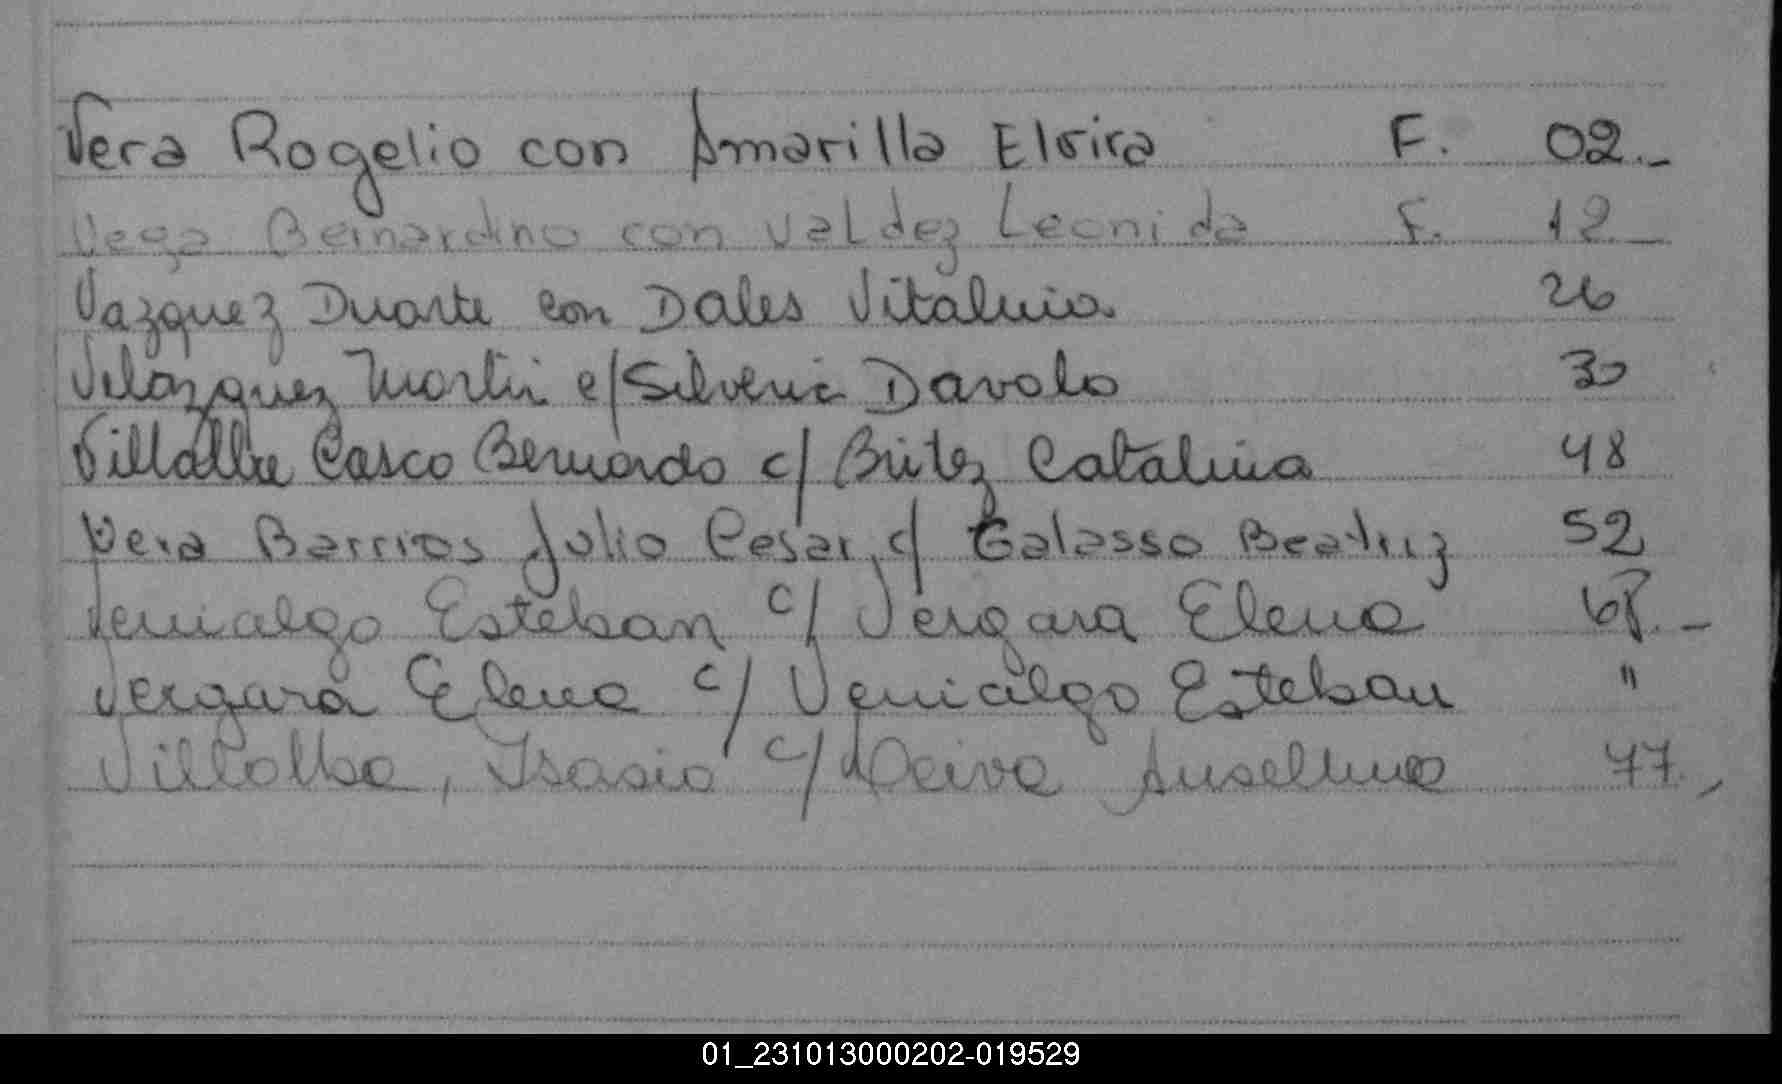 Vera Rogelio con Amarilla Elvira F. 02.-
Vega Bernardino con Valdez Leonida F. 12-
Vazquez Duarte con Dales Vitalina 26
Velazquez Martin c/ Silveria Davalo 30
Villalba Casco Bernardo c/ Britez Catalina 48
Vera Barrios Julio Cesar c/ Galasso Beatriz 52
Venialgo Esteban c/ Vergara Elena 68.-
Vergara Elena c/ Venialgo Esteban "
Villalba, Isasio c/ Anselma 77.
01_231013000202-019529